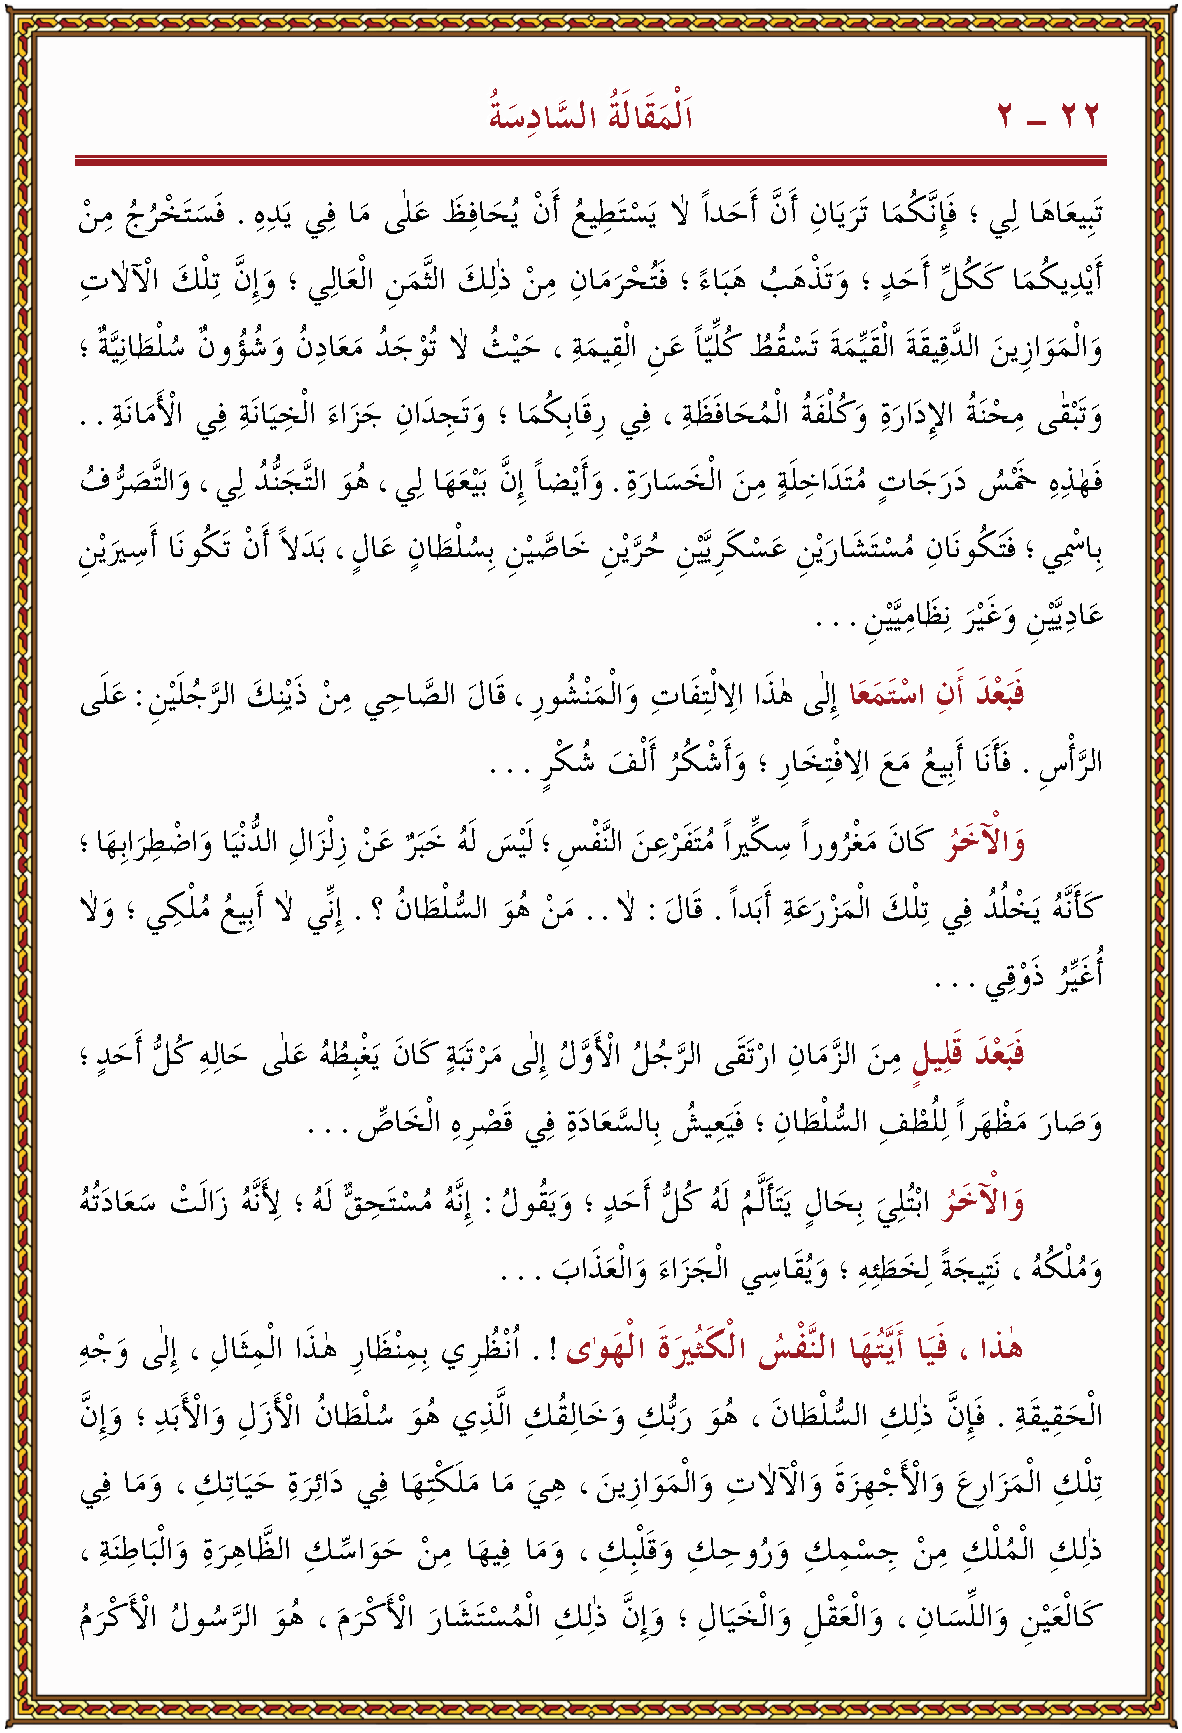 ٢٢ – ٢ اَلْمَقَالَةُ السَّادِسَةُ
تَبِيعَاهَا لِي ؛ فَإِنَّكُمَا تَرَيَانِ أَنَّ أَحَداً لاٰ يَسْتَطِيعُ أَنْ يُحَافِظَ عَلٰى مَا فِي يَدِهِ . فَسَتَخْرُجُ مِنْ
أَيْدِيكُمَا كَكُلِّ أَحَدٍ ؛ وَتَذْهَبُ هَبَاءً ؛ فَتُحْرَمَانِ مِنْ ذٰلِكَ الثَّمَنِ الْعَالِي ؛ وَإِنَّ تِلْكَ الْآلاٰتِ
وَالْمَوَازِينَ الدَّقِيقَةَ الْقَيِّمَةَ تَسْقُطُ كُلِّيّاً عَنِ الْقِيمَةِ ، حَيْثُ لاٰ تُوْجَدُ مَعَادِنُ وَشُؤُونٌ سُلْطَانِيَّةٌ ؛
وَتَبْقٰى مِحْنَةُ الإِدَارَةِ وَكُلْفَةُ الْمُحَافَظَةِ ، فِي رِقَابِكُمَا ؛ وَتَجِدَانِ جَزَاءَ الْخِيَانَةِ فِي الْأَمَانَةِ . .
فَهٰذِهِ خَمْسُ دَرَجَاتٍ مُتَدَاخِلَةٍ مِنَ الْخَسَارَةِ . وَأَيْضاً إِنَّ بَيْعَهَا لِي ، هُوَ التَّجَنُّدُ لِي ، وَالتَّصَرُّفُ
بِاسْمِي ؛ فَتَكُونَانِ مُسْتَشَارَيْنِ عَسْكَرِيَّيْنِ حُرَّيْنِ خَاصَّيْنِ بِسُلْطَانٍ عَالٍ ، بَدَلاً أَنْ تَكُونَا أَسِيرَيْنِ
عَادِيَّيْنِ وَغَيْرَ نِظَامِيَّيْنِ . . .
فَبَعْدَ أَنِ اسْتَمَعَا إِلٰى هٰذَا الاِلْتِفَاتِ وَالْمَنْشُورِ ، قَالَ الصَّاحِي مِنْ ذَيْنِكَ الرَّجُلَيْنِ : عَلَى
الرَّأْسِ . فَأَنَا أَبِيعُ مَعَ الاِفْتِخَارِ ؛ وَأَشْكُرُ أَلْفَ شُكْرٍ . . .
وَالْآخَرُ كَانَ مَغْرُوراً سِكِّيراً مُتَفَرْعِنَ النَّفْسِ ؛ لَيْسَ لَهُ خَبَرٌ عَنْ زِلْزَالِ الدُّنْيَا وَاضْطِرَابِهَا ؛
كَأَنَّهُ يَخْلُدُ فِي تِلْكَ الْمَزْرَعَةِ أَبَداً . قَالَ : لاٰ . . مَنْ هُوَ السُّلْطَانُ ؟ . إِنِّي لاٰ أَبِيعُ مُلْكِي ؛ وَلاٰ
أُغَيِّرُ ذَوْقِي . . .
فَبَعْدَ قَلِيلٍ مِنَ الزَّمَانِ ارْتَقَى الرَّجُلُ الْأَوَّلُ إِلٰى مَرْتَبَةٍ كَانَ يَغْبِطُهُ عَلٰى حَالِهِ كُلُّ أَحَدٍ ؛
وَصَارَ مَظْهَراً لِلُطْفِ السُّلْطَانِ ؛ فَيَعِيشُ بِالسَّعَادَةِ فِي قَصْرِهِ الْخَاصِّ . . .
وَالْآخَرُ ابْتُلِيَ بِحَالٍ يَتَأَلَّمُ لَهُ كُلُّ أَحَدٍ ؛ وَيَقُولُ : إِنَّهُ مُسْتَحِقٌّ لَهُ ؛ لِأَنَّهُ زَالَتْ سَعَادَتُهُ
وَمُلْكُهُ ، نَتِيجَةً لِخَطَئِهِ ؛ وَيُقَاسِي الْجَزَاءَ وَالْعَذَابَ . . .
هٰذَا ، فَيَا أَيَّتُهَا النَّفْسُ الْكَثِيرَةَ الْهَوٰى ! . اُنْظُرِي بِمِنْظَارِ هٰذَا الْمِثَالِ ، إِلٰى وَجْهِ
الْحَقِيقَةِ . فَإِنَّ ذٰلِكِ السُّلْطَانَ ، هُوَ رَبُّكِ وَخَالِقُكِ الَّذِي هُوَ سُلْطَانُ الْأَزَلِ وَالْأَبَدِ ؛ وَإِنَّ
تِلْكِ الْمَزَارِعَ وَالْأَجْهِزَةَ وَالْآلاٰتِ وَالْمَوَازِينَ ، هِيَ مَا مَلَكْتِهَا فِي دَائِرَةِ حَيَاتِكِ ، وَمَا فِي
ذٰلِكِ الْمُلْكِ مِنْ جِسْمِكِ وَرُوحِكِ وَقَلْبِكِ ، وَمَا فِيهَا مِنْ حَوَاسِّكِ الظَّاهِرَةِ وَالْبَاطِنَةِ ،
كَالْعَيْنِ وَاللِّسَانِ ، وَالْعَقْلِ وَالْخَيَالِ ؛ وَإِنَّ ذٰلِكِ الْمُسْتَشَارَ الْأَكْرَمَ ، هُوَ الرَّسُولُ الْأَكْرَمُ